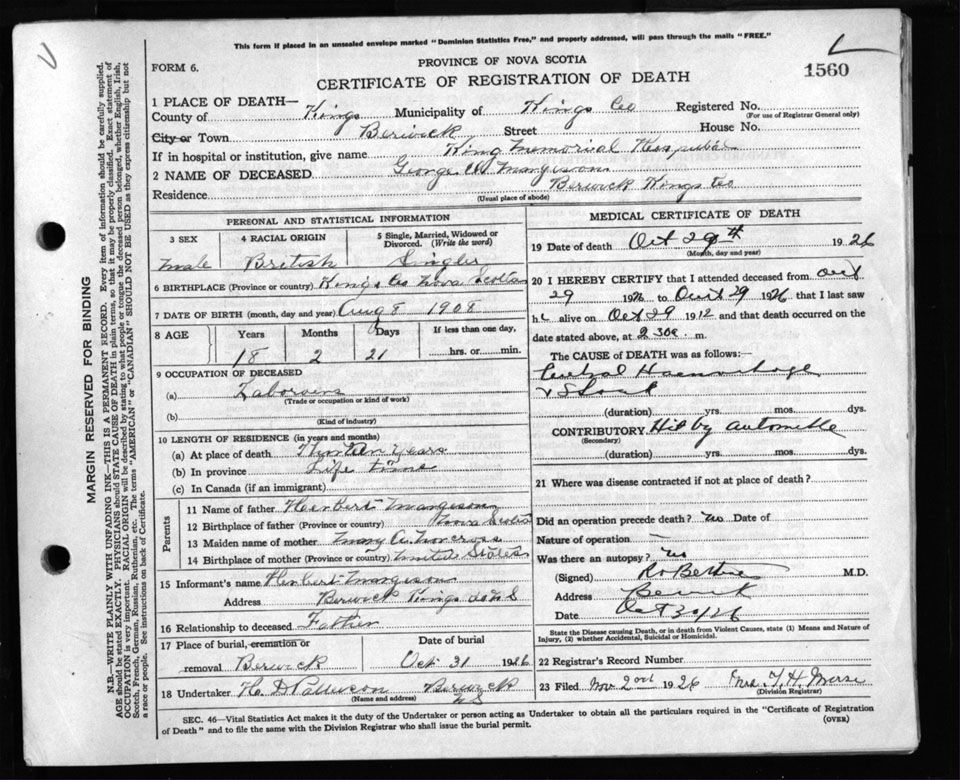 This form if placed in an unsealed envelope marked "Dominion Statistics Free," and properly addressed, will pass through the mails "FREE."
PROVINCE OF NOVA SCOTIA
FORM 6.
CERTIFICATE OF REGISTRATION OF DEATH
1560
1 PLACE OF DEATH—
County of Kings Municipality of Kings Co Registered No.
(For use of Registrar General only)
City or Town Berwick Street House No.
If in hospital or institution, give name King Memorial Hospital
2 NAME OF DECEASED George W Margeson
Residence Berwick Kings Co
(Usual place of abode)
PERSONAL AND STATISTICAL INFORMATION
3 SEX 4 RACIAL ORIGIN 5 Single, Married, Widowed or Divorced. (Write the word)
male British Single
6 BIRTHPLACE (Province or country) Kings Co Nova Scotia
7 DATE OF BIRTH (month, day and year) Aug 8 1908
8 AGE Years Months Days If less than one day,
18 2 21 hrs. or min.
9 OCCUPATION OF DECEASED
(a)
(Trade or occupation or kind of work)
(b)
(Kind of industry)
10 LENGTH OF RESIDENCE (in years and months)
(a) At place of death years
(b) In province Life time
(c) In Canada (if an immigrant)
Parents
11 Name of father Herbert Margeson
12 Birthplace of father (Province or country) Nova Scotia
13 Maiden name of mother Mary A. Norcross
14 Birthplace of mother (Province or country) United States
15 Informant's name Herbert Margeson
Address Berwick Kings Co N S
16 Relationship to deceased Father
17 Place of burial, cremation or Date of burial
removal Berwick Oct 31 1926
18 Undertaker H. D Berwick
(Name and address) N S
MEDICAL CERTIFICATE OF DEATH
19 Date of death Oct 29th 1926
(Month, day and year)
20 I HEREBY CERTIFY that I attended deceased from Oct
29 1926 to Oct 29 1926 that I last saw
h alive on Oct 29 19 and that death occurred on the
date stated above, at 2 30 m.
The CAUSE of DEATH was as follows:—
Haemorrhage
& Shock
(duration) yrs. mos. dys.
CONTRIBUTORY Hit by automobile
(Secondary)
(duration) yrs. mos. dys.
21 Where was disease contracted if not at place of death?
Did an operation precede death? No Date of
Nature of operation
Was there an autopsy? No
(Signed) M.D.
Address Berwick
Date Oct 30/26
State the Disease causing Death, or in death from Violent Causes, state (1) Means and Nature of
Injury, (2) whether Accidental, Suicidal or Homicidal.
22 Registrar's Record Number
23 Filed Nov 2nd 1926 Mrs. H. Morse
(Division Registrar)
SEC. 46—Vital Statistics Act makes it the duty of the Undertaker or person acting as Undertaker to obtain all the particulars required in the "Certificate of Registration
of Death" and to file the same with the Division Registrar who shall issue the burial permit.
(OVER)
MARGIN RESERVED FOR BINDING
N.B.—WRITE PLAINLY WITH UNFADING INK—THIS IS A PERMANENT RECORD. Every item of information should be carefully supplied.
AGE should be stated EXACTLY. PHYSICIANS should STATE CAUSE OF DEATH in plain terms, so that it may be properly classified. Exact statement of
OCCUPATION is very important. RACIAL ORIGIN will be described by stating to what people or tongue the deceased person belonged, whether English, Irish,
Scotch, French, German, Russian, Ruthenian, etc. The terms "AMERICAN" or "CANADIAN" SHOULD NOT BE USED as they express citizenship but not
a race or people. See instructions on back of Certificate.